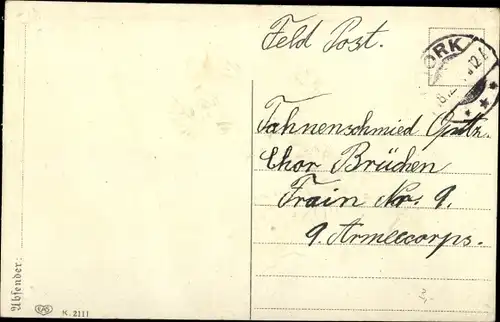 Feld Post.
JORK
Fahnenschmied Opitz.
Chor Brücken
Train Nr. 9.
9. Armeecorps.
Absender:
K. 2111
3,-